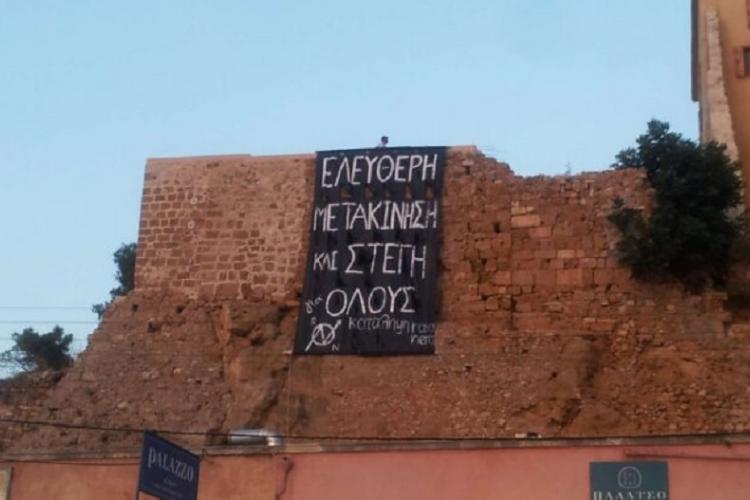 ΕΛΕΥΘΕΡΗ
ΜΕΤΑΚΙΝΗΣΗ
και ΣΤΕΓΗ
για ΟΛΟΥΣ
κατάληψη rosa
nera
PALAZZO
ΠΑΛΑΤΣΟ